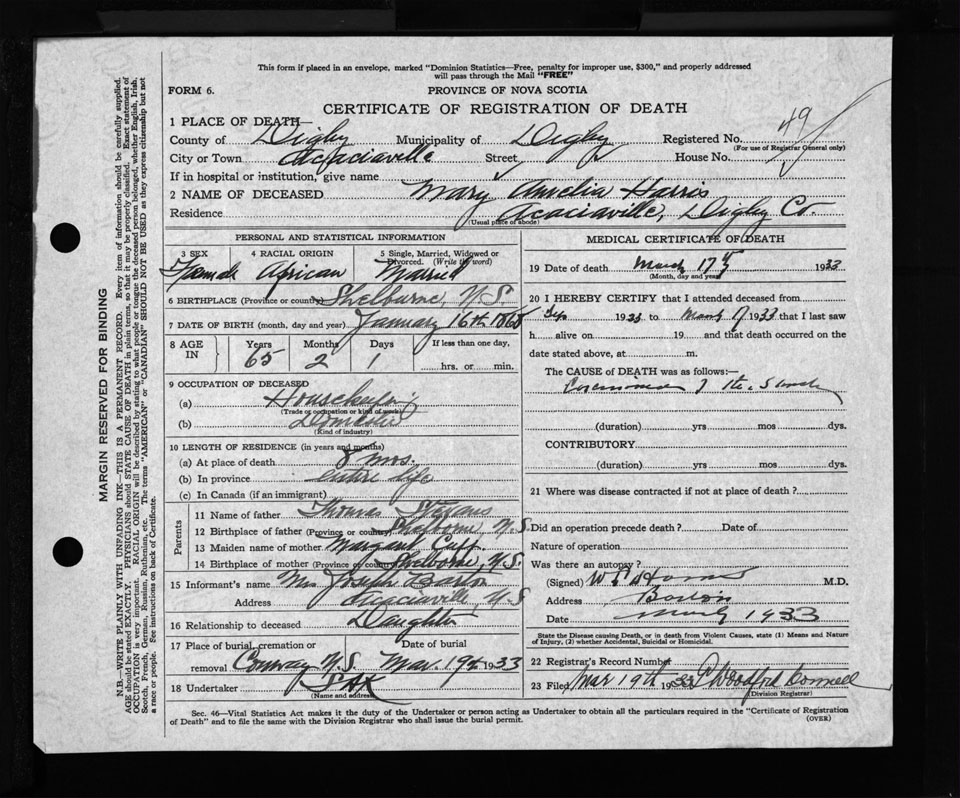 This form if placed in an envelope, marked "Dominion Statistics—Free, penalty for improper use, $300," and properly addressed
will pass through the Mail "FREE"
FORM 6. PROVINCE OF NOVA SCOTIA
CERTIFICATE OF REGISTRATION OF DEATH
1 PLACE OF DEATH—
County of Digby Municipality of Digby Registered No. 49
(For use of Registrar General only)
City or Town Acaciaville Street House No.
If in hospital or institution, give name
2 NAME OF DECEASED Mary Amelia Harris
Residence Acaciaville, Digby Co.
(Usual place of abode)
PERSONAL AND STATISTICAL INFORMATION
3 SEX 4 RACIAL ORIGIN 5 Single, Married, Widowed or Divorced. (Write the word)
Female African Married
6 BIRTHPLACE (Province or country) Shelburne, N.S.
7 DATE OF BIRTH (month, day and year) January 16th 1868
8 AGE IN Years Months Days If less than one day,
65 2 1 hrs. or min.
9 OCCUPATION OF DECEASED
(a) Housekeeping
(Trade or occupation or kind of work)
(b) Domestic
(Kind of industry)
10 LENGTH OF RESIDENCE (in years and months)
(a) At place of death 8 mos.
(b) In province entire life
(c) In Canada (if an immigrant)
Parents
11 Name of father Thomas Stevens
12 Birthplace of father (Province or country) Shelborne N.S.
13 Maiden name of mother Margaret Cupp
14 Birthplace of mother (Province or country) Shelborne, N.S.
15 Informant's name Mrs Joseph Barton
Address Acaciaville, N.S
16 Relationship to deceased Daughter
17 Place of burial, cremation or Date of burial
removal Conway N.S. Mar. 19th 1933
18 Undertaker
(Name and address)
MEDICAL CERTIFICATE OF DEATH
19 Date of death March 17th 1933
(Month, day and year)
20 I HEREBY CERTIFY that I attended deceased from
1933 to March 17 1933 that I last saw
h alive on 19 and that death occurred on the
date stated above, at m.
The CAUSE of DEATH was as follows:—
(duration) yrs mos dys.
CONTRIBUTORY
(duration) yrs mos dys.
21 Where was disease contracted if not at place of death?
Did an operation precede death? Date of
Nature of operation
Was there an autopsy?
(Signed) M.D.
Address
Date 1933
State the Disease causing Death, or in death from Violent Causes, state (1) Means and Nature
of Injury, (2) whether Accidental, Suicidal or Homicidal.
22 Registrar's Record Number
23 Filed Mar 19th 1933 Woodford Connell
(Division Registrar)
Sec. 46—Vital Statistics Act makes it the duty of the Undertaker or person acting as Undertaker to obtain all the particulars required in the "Certificate of Registration
of Death" and to file the same with the Division Registrar who shall issue the burial permit. (OVER)
MARGIN RESERVED FOR BINDING
N.B.—WRITE PLAINLY WITH UNFADING INK—THIS IS A PERMANENT RECORD. Every item of information should be carefully supplied.
AGE should be stated EXACTLY. PHYSICIANS should STATE CAUSE OF DEATH in plain terms, so that it may be properly classified. Exact statement of
OCCUPATION is very important. RACIAL ORIGIN will be described by stating to what people or tongue the deceased person belonged, whether English, Irish,
Scotch, French, German, Russian, Ruthenian, etc. The terms "AMERICAN" or "CANADIAN" SHOULD NOT BE USED as they express citizenship but not
a race or people. See instructions on back of Certificate.